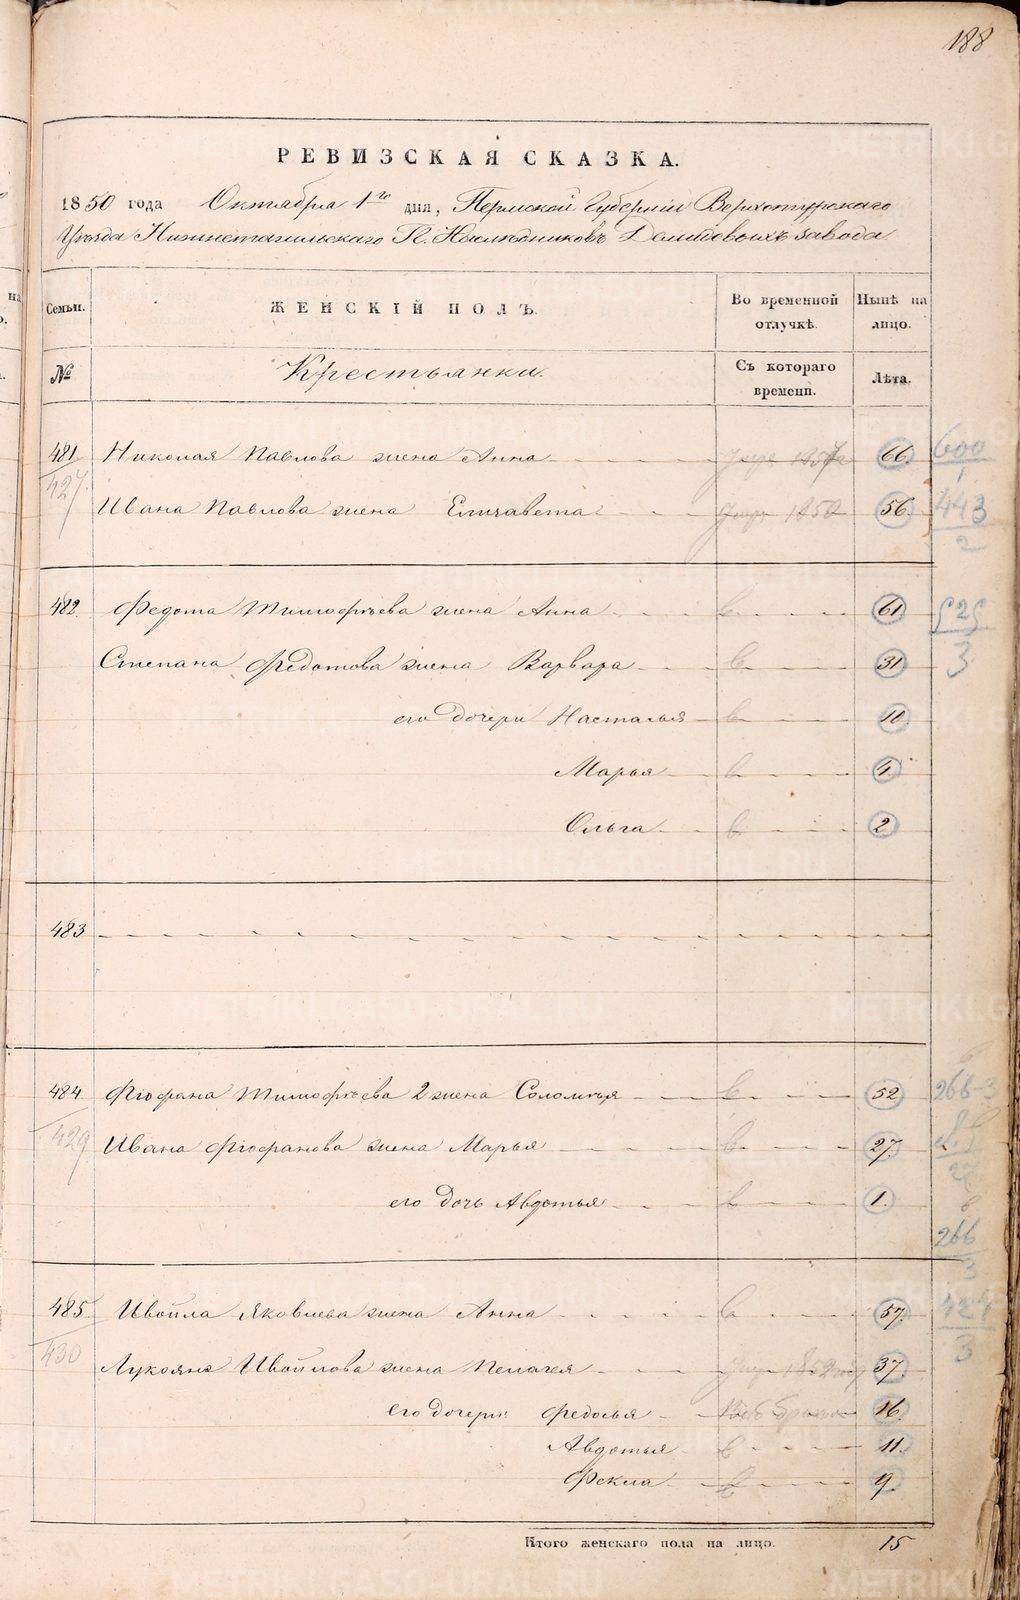 188
РЕВИЗСКАЯ СКАЗКА.
1850 года Октября 1го дня, Пермской Губернии Верхотурскаго
Уезда Нижнетагильскаго Г. Наследниковъ Демидовыхъ завода.
Семьи. ЖЕНСКІЙ ПОЛЪ. Во временной отлучкѣ. Нынѣ на лицо.
№ Крестьянки. Съ котораго времени. Лѣта.
481 Николая Павлова жена Анна 66. 600
427 1
Ивана Павлова жена Елизавета 56. 443
2
482. Федота Тимофѣева жена Анна в 61 525
Степана Федотова жена Варвара в 31 3
его дочери Насталья в 10
Марья в 4
Ольга в 2
483
484. Фіофана Тимофѣева 2 жена Соломѣя в 52 266-3
429 Ивана Фіофанова жена Марья в 27.
его дочь Авдотья в 1.
266
3
485. Ивойла Яковлева жена Анна в 57. 424
430 3
Лукояна Ивойлова жена Пелагея 37.
его дочери Федосья 16.
Авдотья в 11.
Фекла в 9.
Итого женскаго пола на лицо. 15
METRIKI.GASO-URAL.RU